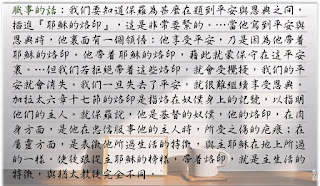 職事的話：我們要知道保羅為甚麼在題到平安與恩典之間，
描述『耶穌的烙印』，這是非常要緊的。…當他寫到平安與
恩典時，他裏面有一個領悟：他享受平安，乃是因為他帶著
耶穌的烙印。他帶著耶穌的烙印，藉此就蒙保守在這平安
裏。…但我們若拒絕帶著這些烙印，就會受攪擾，我們的平
安就會消失。我們一旦失去了平安，就很難繼續享受恩典。
加拉太六章十七節的烙印是指烙在奴僕身上的記號，以指明
他們的主人。就保羅說，他是基督的奴僕，他的烙印，在肉
身方面，是他在忠信服事他的主人時，所受之傷的疤痕；在
屬靈方面，是表徵他所過生活的特徵，與主耶穌在地上所過
的一樣。使徒跟從主耶穌的榜樣，帶著烙印，就是主生活的
特徵，與猶太教徒完全不同。